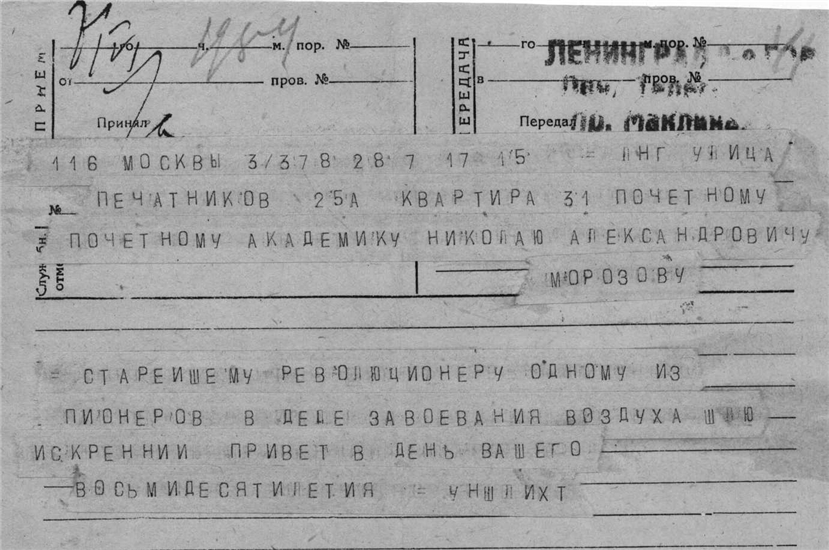 го ч. м. пор. №
от пров. №
ПРИЕМ
Принял
ПЕРЕДАЧА
го м. пор. №
в пров. №
Передал
ЛЕНИНГРАД
пр. Маклина
116 МОСКВЫ 3/378 28 7 17 15 = ЛНГ УЛИЦА
ПЕЧАТНИКОВ 25А КВАРТИРА 31 ПОЧЕТНОМУ
№
ПОЧЕТНОМУ АКАДЕМИКУ НИКОЛАЮ АЛЕКСАНДРОВИЧУ
МОРОЗОВУ
= СТАРЕИШЕМУ РЕВОЛЮЦИОНЕРУ ОДНОМУ ИЗ
ПИОНЕРОВ В ДЕДЕ ЗАВОЕВАНИЯ ВОЗДУХА ШЛЮ
ИСКРЕННИИ ПРИВЕТ В ДЕНЬ ВАШЕГО
ВОСЬМИДЕСЯТИЛЕТИЯ = УНШЛИХТ